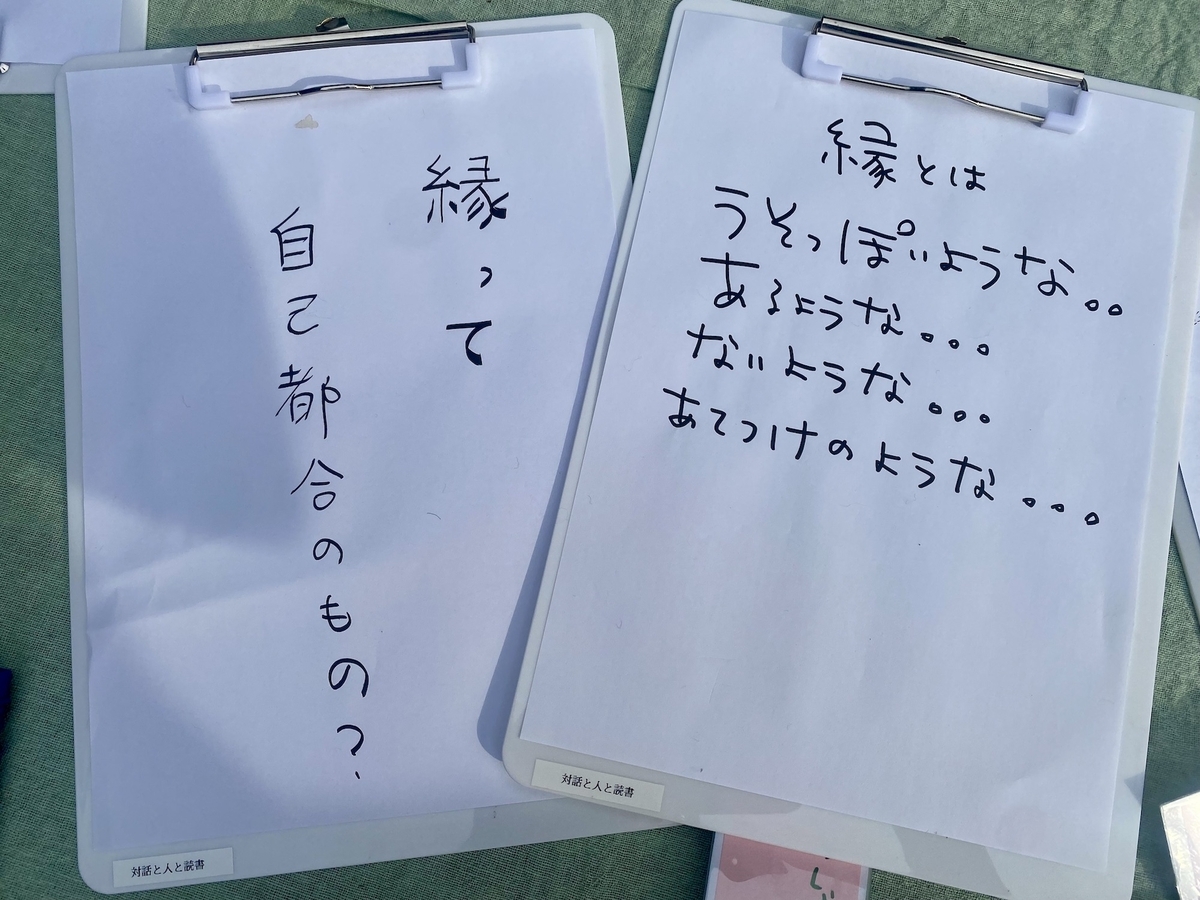 縁って
自己都合のもの?
対話と人と読書
縁とは
うそっぽいような。。
あるような。。。
ないような。。。
あてつけのような。。。
対話と人と読書